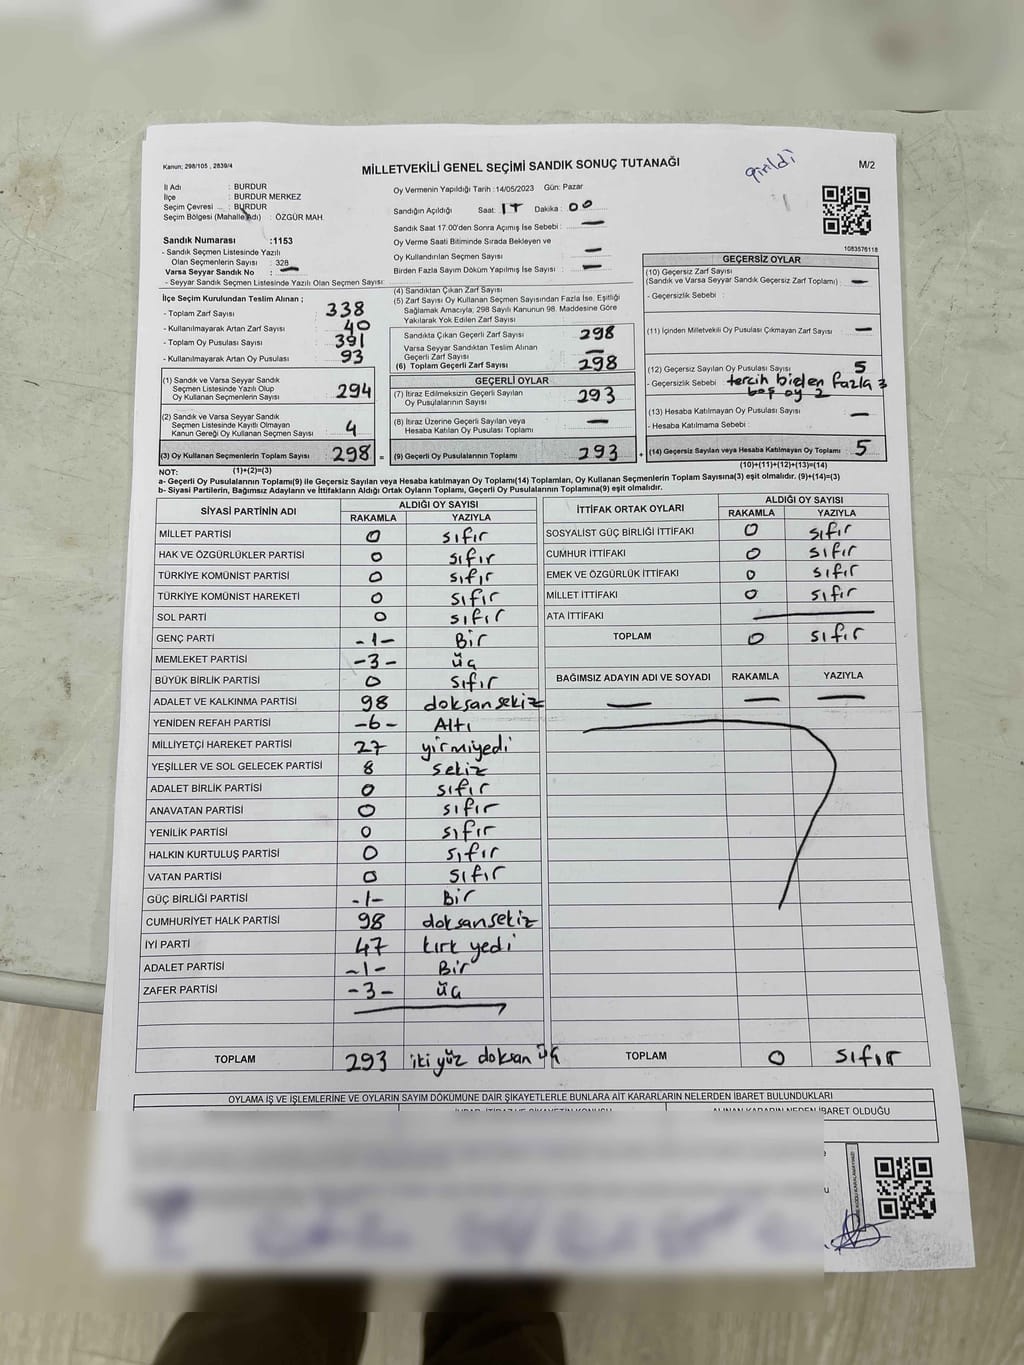 Kanun; 298/105 , 2839/4
MİLLETVEKİLİ GENEL SEÇİMİ SANDIK SONUÇ TUTANAĞI
girildi
M/2
İl Adı : BURDUR
İlçe : BURDUR MERKEZ
Seçim Çevresi : BURDUR
Seçim Bölgesi (Mahalle Adı) : ÖZGÜR MAH.
Oy Vermenin Yapıldığı Tarih :14/05/2023 Gün: Pazar
Sandığın Açıldığı Saat: 17 Dakika : 00
Sandık Saat 17.00'den Sonra Açımış İse Sebebi : —
Oy Verme Saati Bitiminde Sırada Bekleyen ve
Oy Kullandırılan Seçmen Sayısı : —
Birden Fazla Sayım Döküm Yapılmış İse Sayısı : —
1083576118
Sandık Numarası :1153
- Sandık Seçmen Listesinde Yazılı
Olan Seçmenlerin Sayısı : 328
Varsa Seyyar Sandık No : —
- Seyyar Sandık Seçmen Listesinde Yazılı Olan Seçmen Sayısı:
İlçe Seçim Kurulundan Teslim Alınan ;
- Toplam Zarf Sayısı 338
- Kullanılmayarak Artan Zarf Sayısı 40
- Toplam Oy Pusulası Sayısı 391
- Kullanılmayarak Artan Oy Pusulası 93
(1) Sandık ve Varsa Seyyar Sandık
Seçmen Listesinde Yazılı Olup
Oy Kullanan Seçmenlerin Sayısı 294
(2) Sandık ve Varsa Seyyar Sandık
Seçmen Listesinde Kayıtlı Olmayan
Kanun Gereği Oy Kullanan Seçmen Sayısı 4
(3) Oy Kullanan Seçmenlerin Toplam Sayısı 298 =
(4) Sandıktan Çıkan Zarf Sayısı
(5) Zarf Sayısı Oy Kullanan Seçmen Sayısından Fazla İse, Eşitliği
Sağlamak Amacıyla; 298 Sayılı Kanunun 98. Maddesine Göre
Yakılarak Yok Edilen Zarf Sayısı
Sandıkta Çıkan Geçerli Zarf Sayısı 298
Varsa Seyyar Sandıktan Teslim Alınan
Geçerli Zarf Sayısı —
(6) Toplam Geçerli Zarf Sayısı 298
GEÇERLİ OYLAR
(7) İtiraz Edilmeksizin Geçerli Sayılan
Oy Pusulalarının Sayısı 293
(8) İtiraz Üzerine Geçerli Sayılan veya
Hesaba Katılan Oy Pusulası Toplamı —
(9) Geçerli Oy Pusulalarının Toplamı 293 +
GEÇERSİZ OYLAR
(10) Geçersiz Zarf Sayısı
(Sandık ve Varsa Seyyar Sandık Geçersiz Zarf Toplamı) : —
- Geçersizlik Sebebi :
(11) İçinden Milletvekili Oy Pusulası Çıkmayan Zarf Sayısı —
(12) Geçersiz Sayılan Oy Pusulası Sayısı 5
- Geçersizlik Sebebi tercih birden fazla 3
boş oy 2
(13) Hesaba Katılmayan Oy Pusulası Sayısı —
- Hesaba Katılmama Sebebi :
(14) Geçersiz Sayılan veya Hesaba Katılmayan Oy Toplamı 5
NOT: (1)+(2)=(3)
(10)+(11)+(12)+(13)=(14)
a- Geçerli Oy Pusulalarının Toplamı(9) ile Geçersiz Sayılan veya Hesaba katılmayan Oy Toplamı(14) Toplamları, Oy Kullanan Seçmenlerin Toplam Sayısına(3) eşit olmalıdır. (9)+(14)=(3)
b- Siyasi Partilerin, Bağımsız Adayların ve İttifakların Aldığı Ortak Oyların Toplamı, Geçerli Oy Pusulalarının Toplamına(9) eşit olmalıdır.
SİYASİ PARTİNİN ADI ALDIĞI OY SAYISI
RAKAMLA YAZIYLA
MİLLET PARTİSİ 0 sıfır
HAK VE ÖZGÜRLÜKLER PARTİSİ 0 sıfır
TÜRKİYE KOMÜNİST PARTİSİ 0 sıfır
TÜRKİYE KOMÜNİST HAREKETİ 0 sıfır
SOL PARTİ 0 sıfır
GENÇ PARTİ -1- Bir
MEMLEKET PARTİSİ -3- üç
BÜYÜK BİRLİK PARTİSİ 0 sıfır
ADALET VE KALKINMA PARTİSİ 98 doksansekiz
YENİDEN REFAH PARTİSİ -6- Altı
MİLLİYETÇİ HAREKET PARTİSİ 27 yirmiyedi
YEŞİLLER VE SOL GELECEK PARTİSİ 8 sekiz
ADALET BİRLİK PARTİSİ 0 sıfır
ANAVATAN PARTİSİ 0 sıfır
YENİLİK PARTİSİ 0 sıfır
HALKIN KURTULUŞ PARTİSİ 0 sıfır
VATAN PARTİSİ 0 sıfır
GÜÇ BİRLİĞİ PARTİSİ -1- Bir
CUMHURİYET HALK PARTİSİ 98 doksansekiz
İYİ PARTİ 47 kırk yedi
ADALET PARTİSİ -1- Bir
ZAFER PARTİSİ -3- üç
TOPLAM 293 iki yüz doksan üç
İTTİFAK ORTAK OYLARI ALDIĞI OY SAYISI
RAKAMLA YAZIYLA
SOSYALİST GÜÇ BİRLİĞİ İTTİFAKI 0 sıfır
CUMHUR İTTİFAKI 0 sıfır
EMEK VE ÖZGÜRLÜK İTTİFAKI 0 sıfır
MİLLET İTTİFAKI 0 sıfır
ATA İTTİFAKI —
TOPLAM 0 sıfır
BAĞIMSIZ ADAYIN ADI VE SOYADI RAKAMLA YAZIYLA
— — —
TOPLAM 0 sıfır
OYLAMA İŞ VE İŞLEMLERİNE VE OYLARIN SAYIM DÖKÜMÜNE DAİR ŞİKAYETLERLE BUNLARA AİT KARARLARIN NELERDEN İBARET BULUNDUKLARI
İHBAR, İTİRAZ VE ŞİKAYETİN KONUSU ALINAN KARARIN NEDEN İBARET OLDUĞU